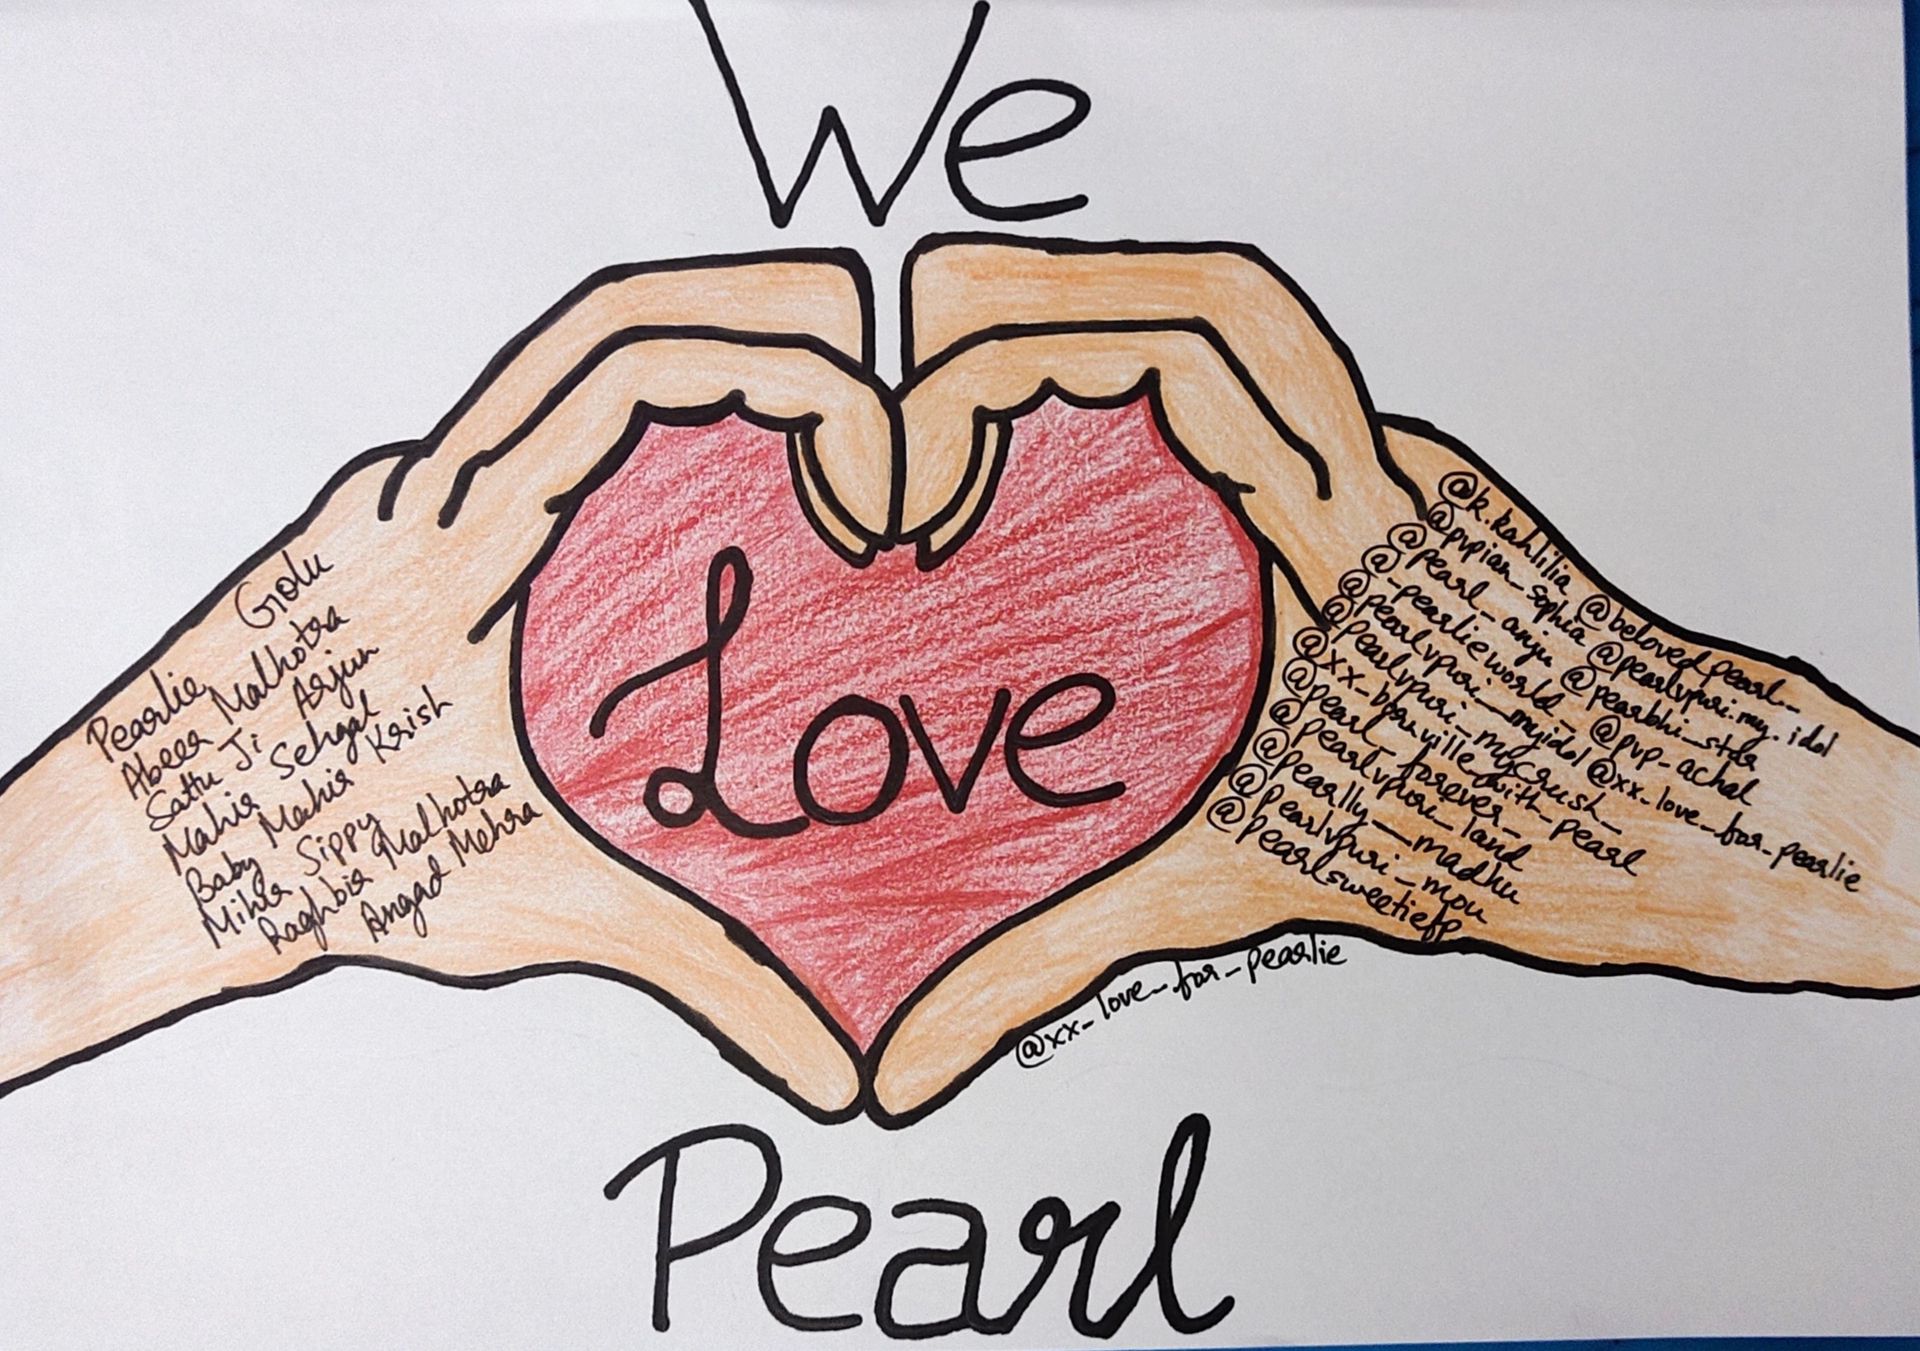 We
Love
Golu
Pearlie
Abeer Malhotra
Sattu Ji Arjun
Mahir Sehgal
Baby Mahir Krish
Mihir Sippy
Raghbir Malhotra
Angad Mehra
@k.kahlilia @belovedpearl_
@pvpian_sophia @pearlvpuri.my.idol
@pearl_anju @pearbhi_star
@_pearlieworld_ @pvp_achal
@pearlvpuri__myidol @xx_love_for_pearlie
@pearlvpuri_mycrush_
@xx_bournville_with_pearl
@pearl_forever_
@pearlvpuri_land
@pearlly__madhu
@pearlvpuri_mou
@pearlsweetiefp
@xx_love_for_pearlie
Pearl